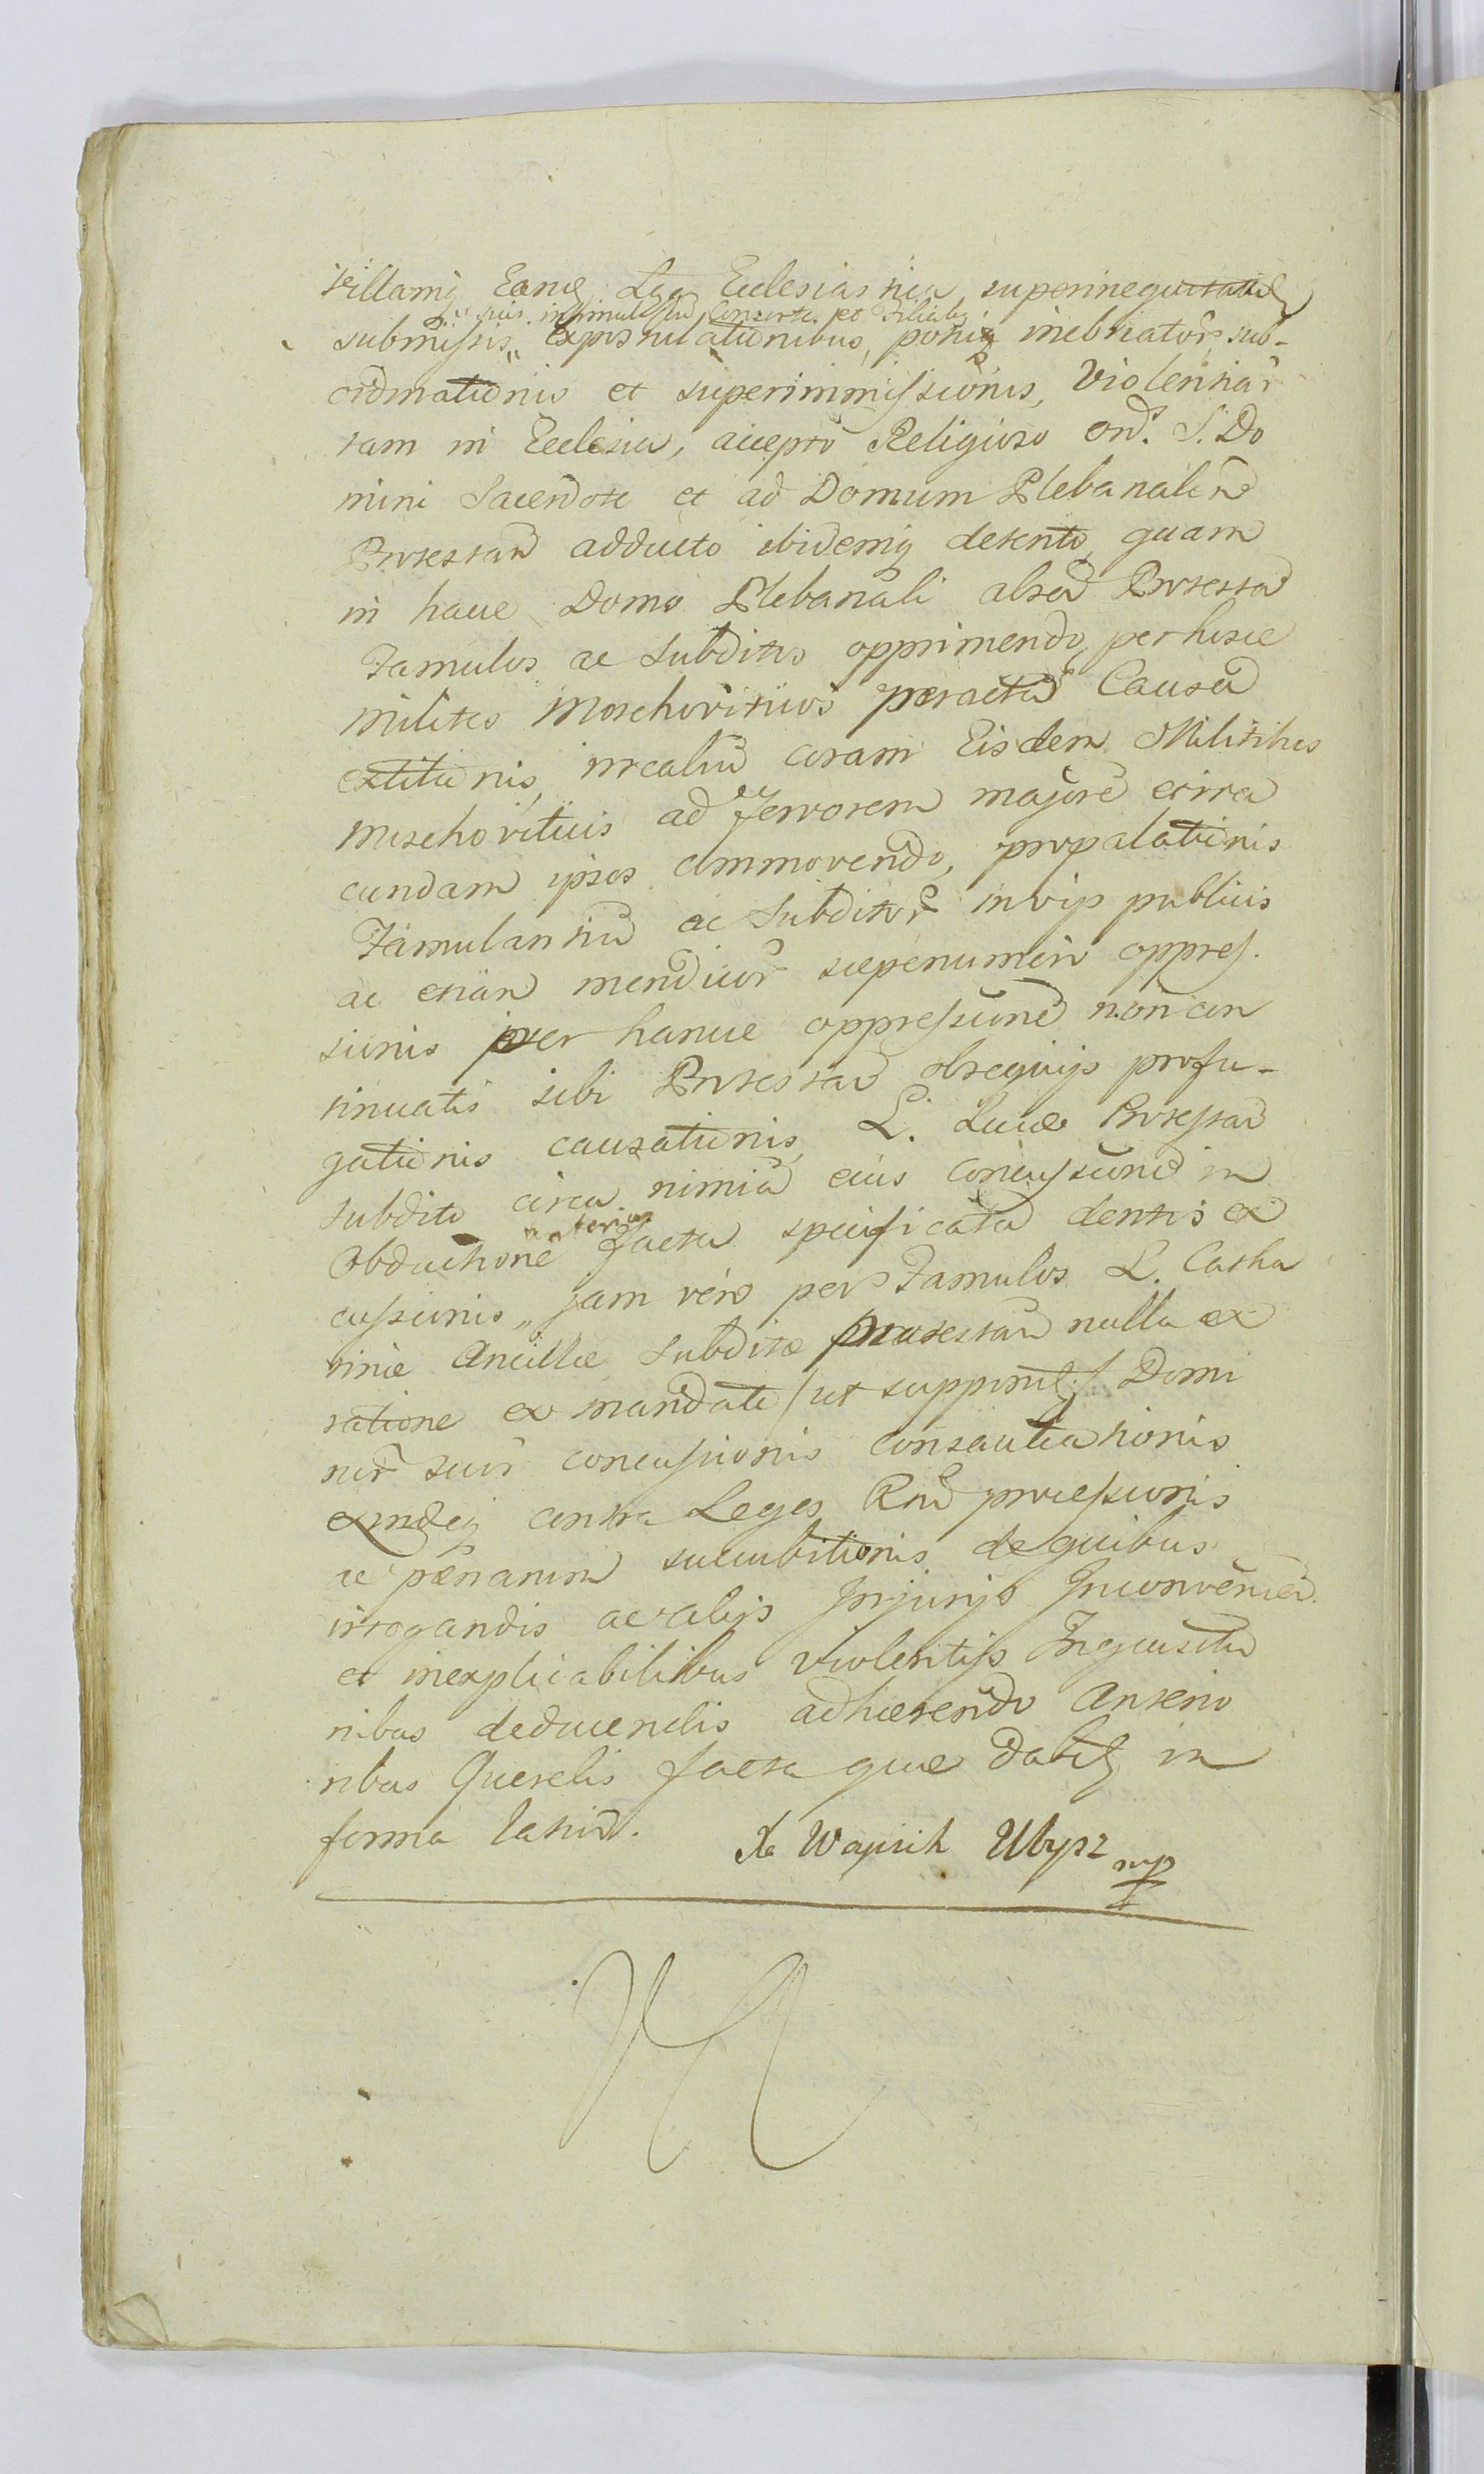 villamq Eamq Lga Ecclesiastica, superinequitatq
suis insimul cum Consorte et Filiabq
submissis „ Expostulationibus, potiq inebriator̃, sub-
ordinationis et superimmissionis, Violentiar̃
tam in Ecclesia, accepto Religioso Ord. S. Do
mini Sacerdote et ad Domum Plebanalem
Protestan̄ adducto ibidemq detento, quam
in hacce Domo Plebanali absen̄ Protestan̄
Famulos ac Subditos opprimendo, per hosce
milites Moschoviticos peractar̄ Causæ
extitionis, irrealiū coram Eisdem Militibus
Moschoviticis ad Terrorem majorē circa
eundam ipsos commovendo, propalationis
Famulantiū ac Subditor̃ in vijs publicis
ac etiam mendicor̃ sæpenumero oppres.
sionis per hancce oppressionē non con
tinuatis sibi Protestan̄ obsequijs profu-
gationis causationis, L. Lucæ Protestan̄
subditi circa nimiā eius concussionē in
Obductione anterius facta specificatā dentis ex
cussionis „ jam vero per Famulos L. Catha
rinæ Ancillæ Subditæ Protestan̄ nulla ex
ratione ex mandato /ut supponitq/ Domi
nor̃ suor̃ concussionis consauciationis
exindeq contra Leges Rnī processionis
ac pœnarum succubitionis de quibus
irrogandis ac alijs Injurijs Inconvenien̄
et inexplicabilibus violentijs Inquisitio
nibus deducendis adhærendo Anterio
ribus Querelis facta quæ dabitq in
forma latiori.
Xa Woyciech Ubysz mp